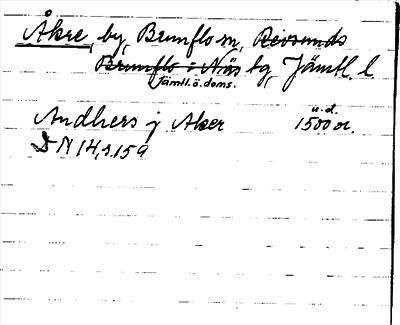 Åkre, by, Brunflo sn, Revsunds
Brunflo o Näs tg, Jämtl. l
Jämtl. ö. doms.
u.d.
Andhers j Aker 1500 or.
DN 14, s. 159